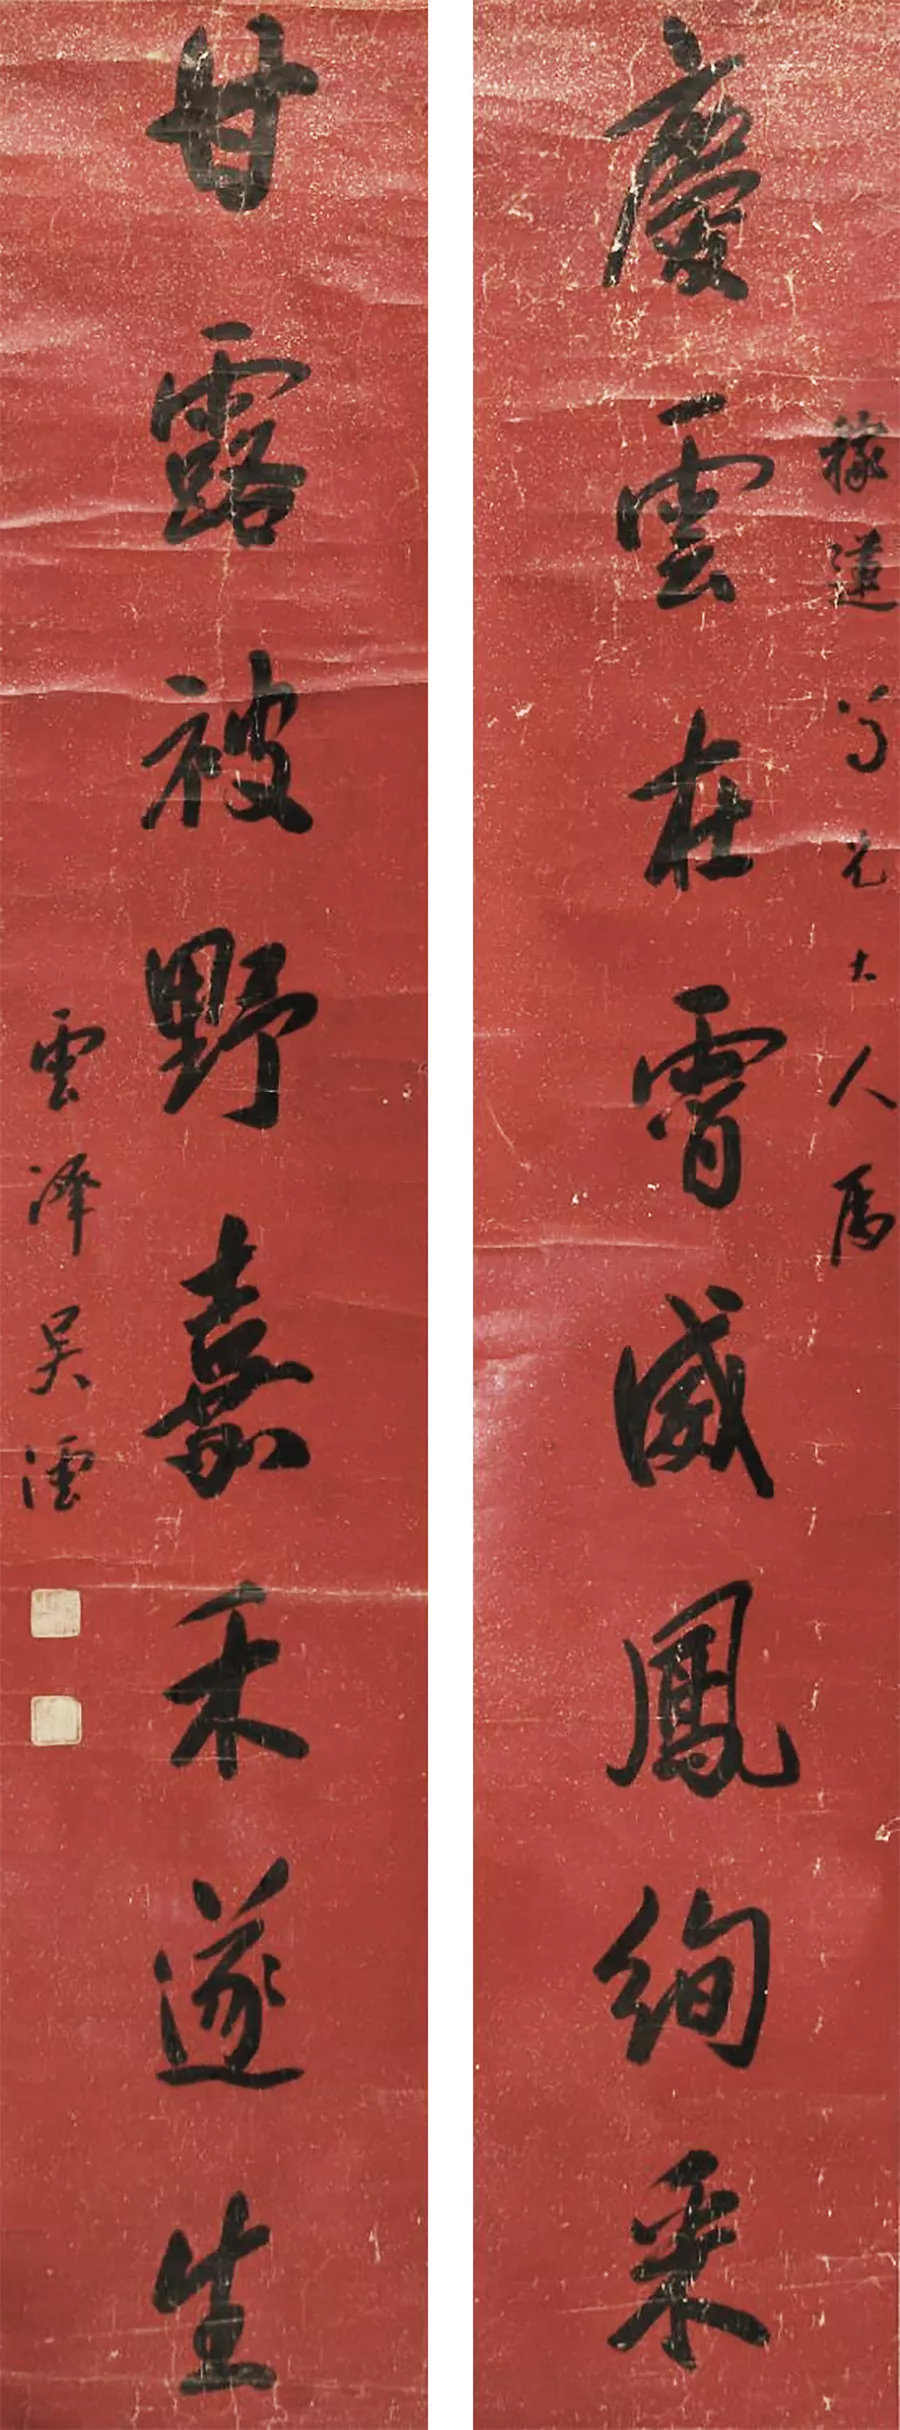 慶雲在霄威鳳絢采
稼蓮尊兄大人属
甘露被野嘉禾遂生
雲澤吳澐